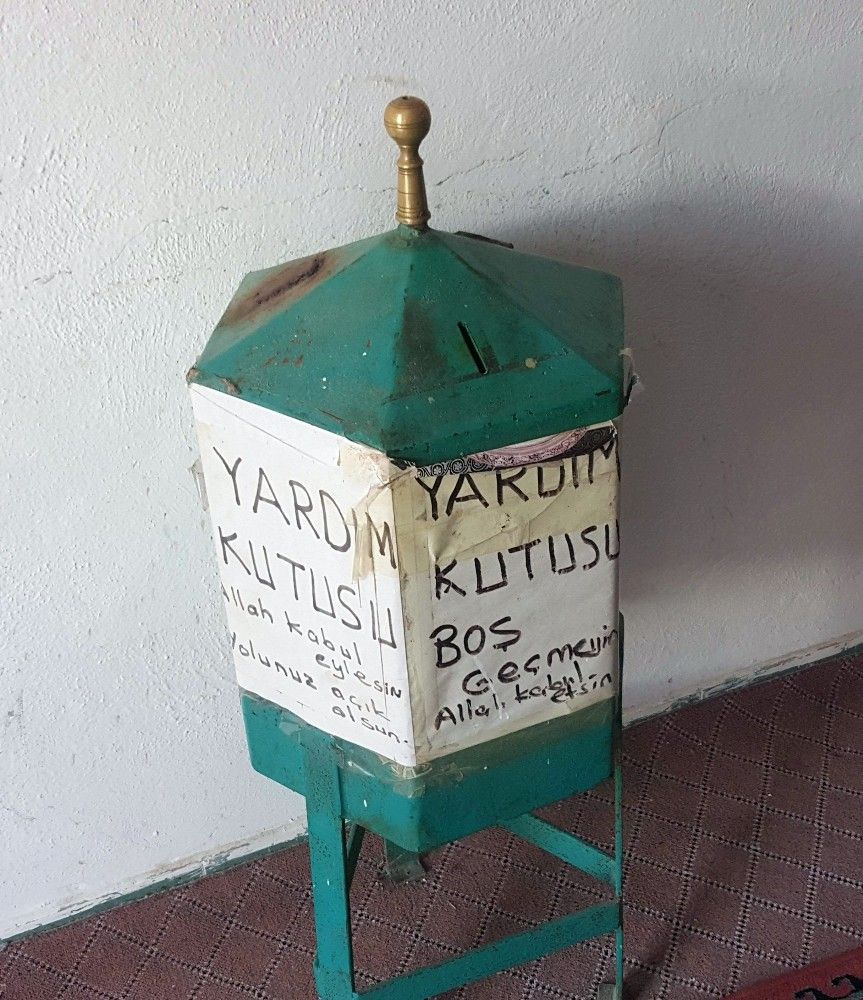 YARDIM
KUTUSU
Allah kabul
eylesin
Yolunuz açık
olsun.
YARDIM
KUTUSU
BOŞ
Geçmeyin
Allah kabul
etsin